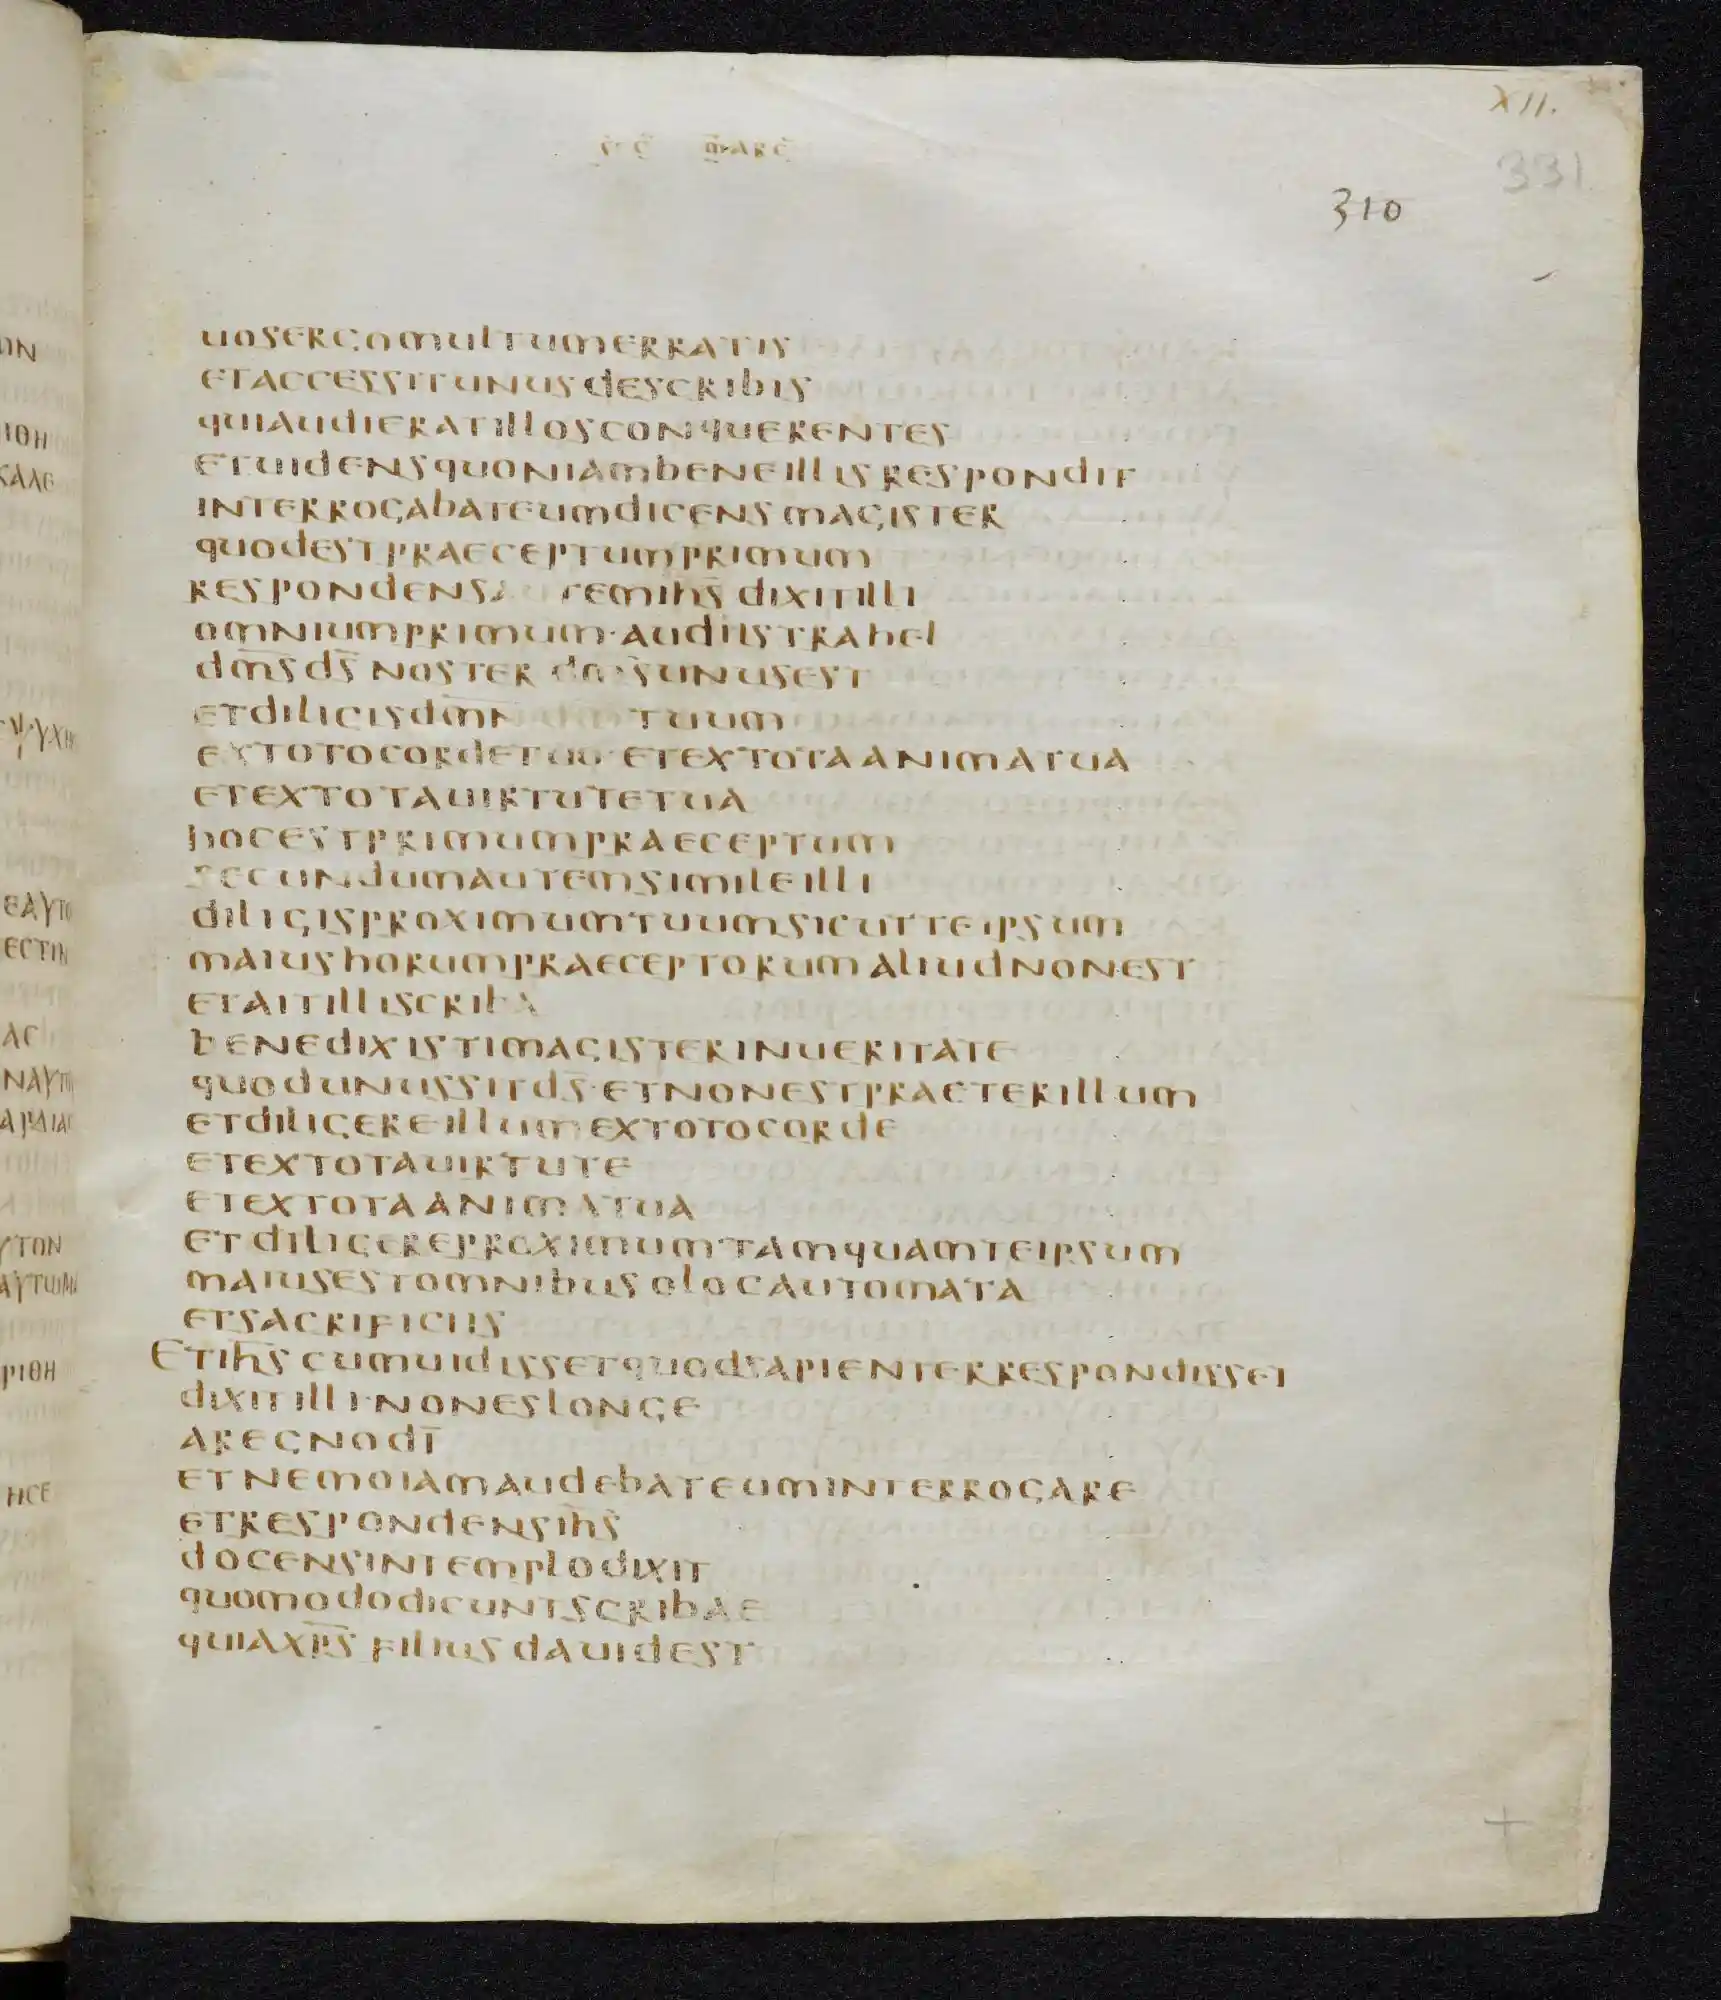 XII.
331
310
uosergomultumerratis
etaccessitunusdescribis
quiaudieratillosconquerentes
etuidensquoniambeneillisrespondit
interrogabateumdicensmagister
quodestpraeceptumprimum
respondens temihs̅ dixitilli
omniumprimum·audiistrahel
dm̅s ds̅ noster unusest
etdiligis tuum
extotocordetuo·etextotaanimatua
etextotauirtutetua
hocestprimumpraeceptum
secundumautemsimileilli
diligisproximumtuumsicutteipsum
maiushorumpraeceptorumaliudnonest
etaitilliscriba
benedixistimagisterinueritate
quodunussitds̅·etnonestpraeterillum
etdiligereillumextotocorde
etextotauirtute
etextotaanimatua
etdiligereproximumtamquamteipsum
maiusestomnibusolocautomata
etsacrificiis
Etihs̅cumuidissetquodsapienterrespondisset
dixitilli·noneslonge
aregnodi̅
etnemoiamaudebateuminterrogare
etrespondensihs̅
docensintemplodixit
quomododicuntscribae
quiaxps̅ filiusdauidest
ΩΝ
ΙΘΗ
ΚΑΛΕ
ΕΑΥΤΟ
ΕϹΤΙΝ
ΝΑΥΤ
ΑΡΔΙΑϹ
ΥΤΟΝ
ΑΥΤΩ
ΡΙΘΗ
ΗϹΕ